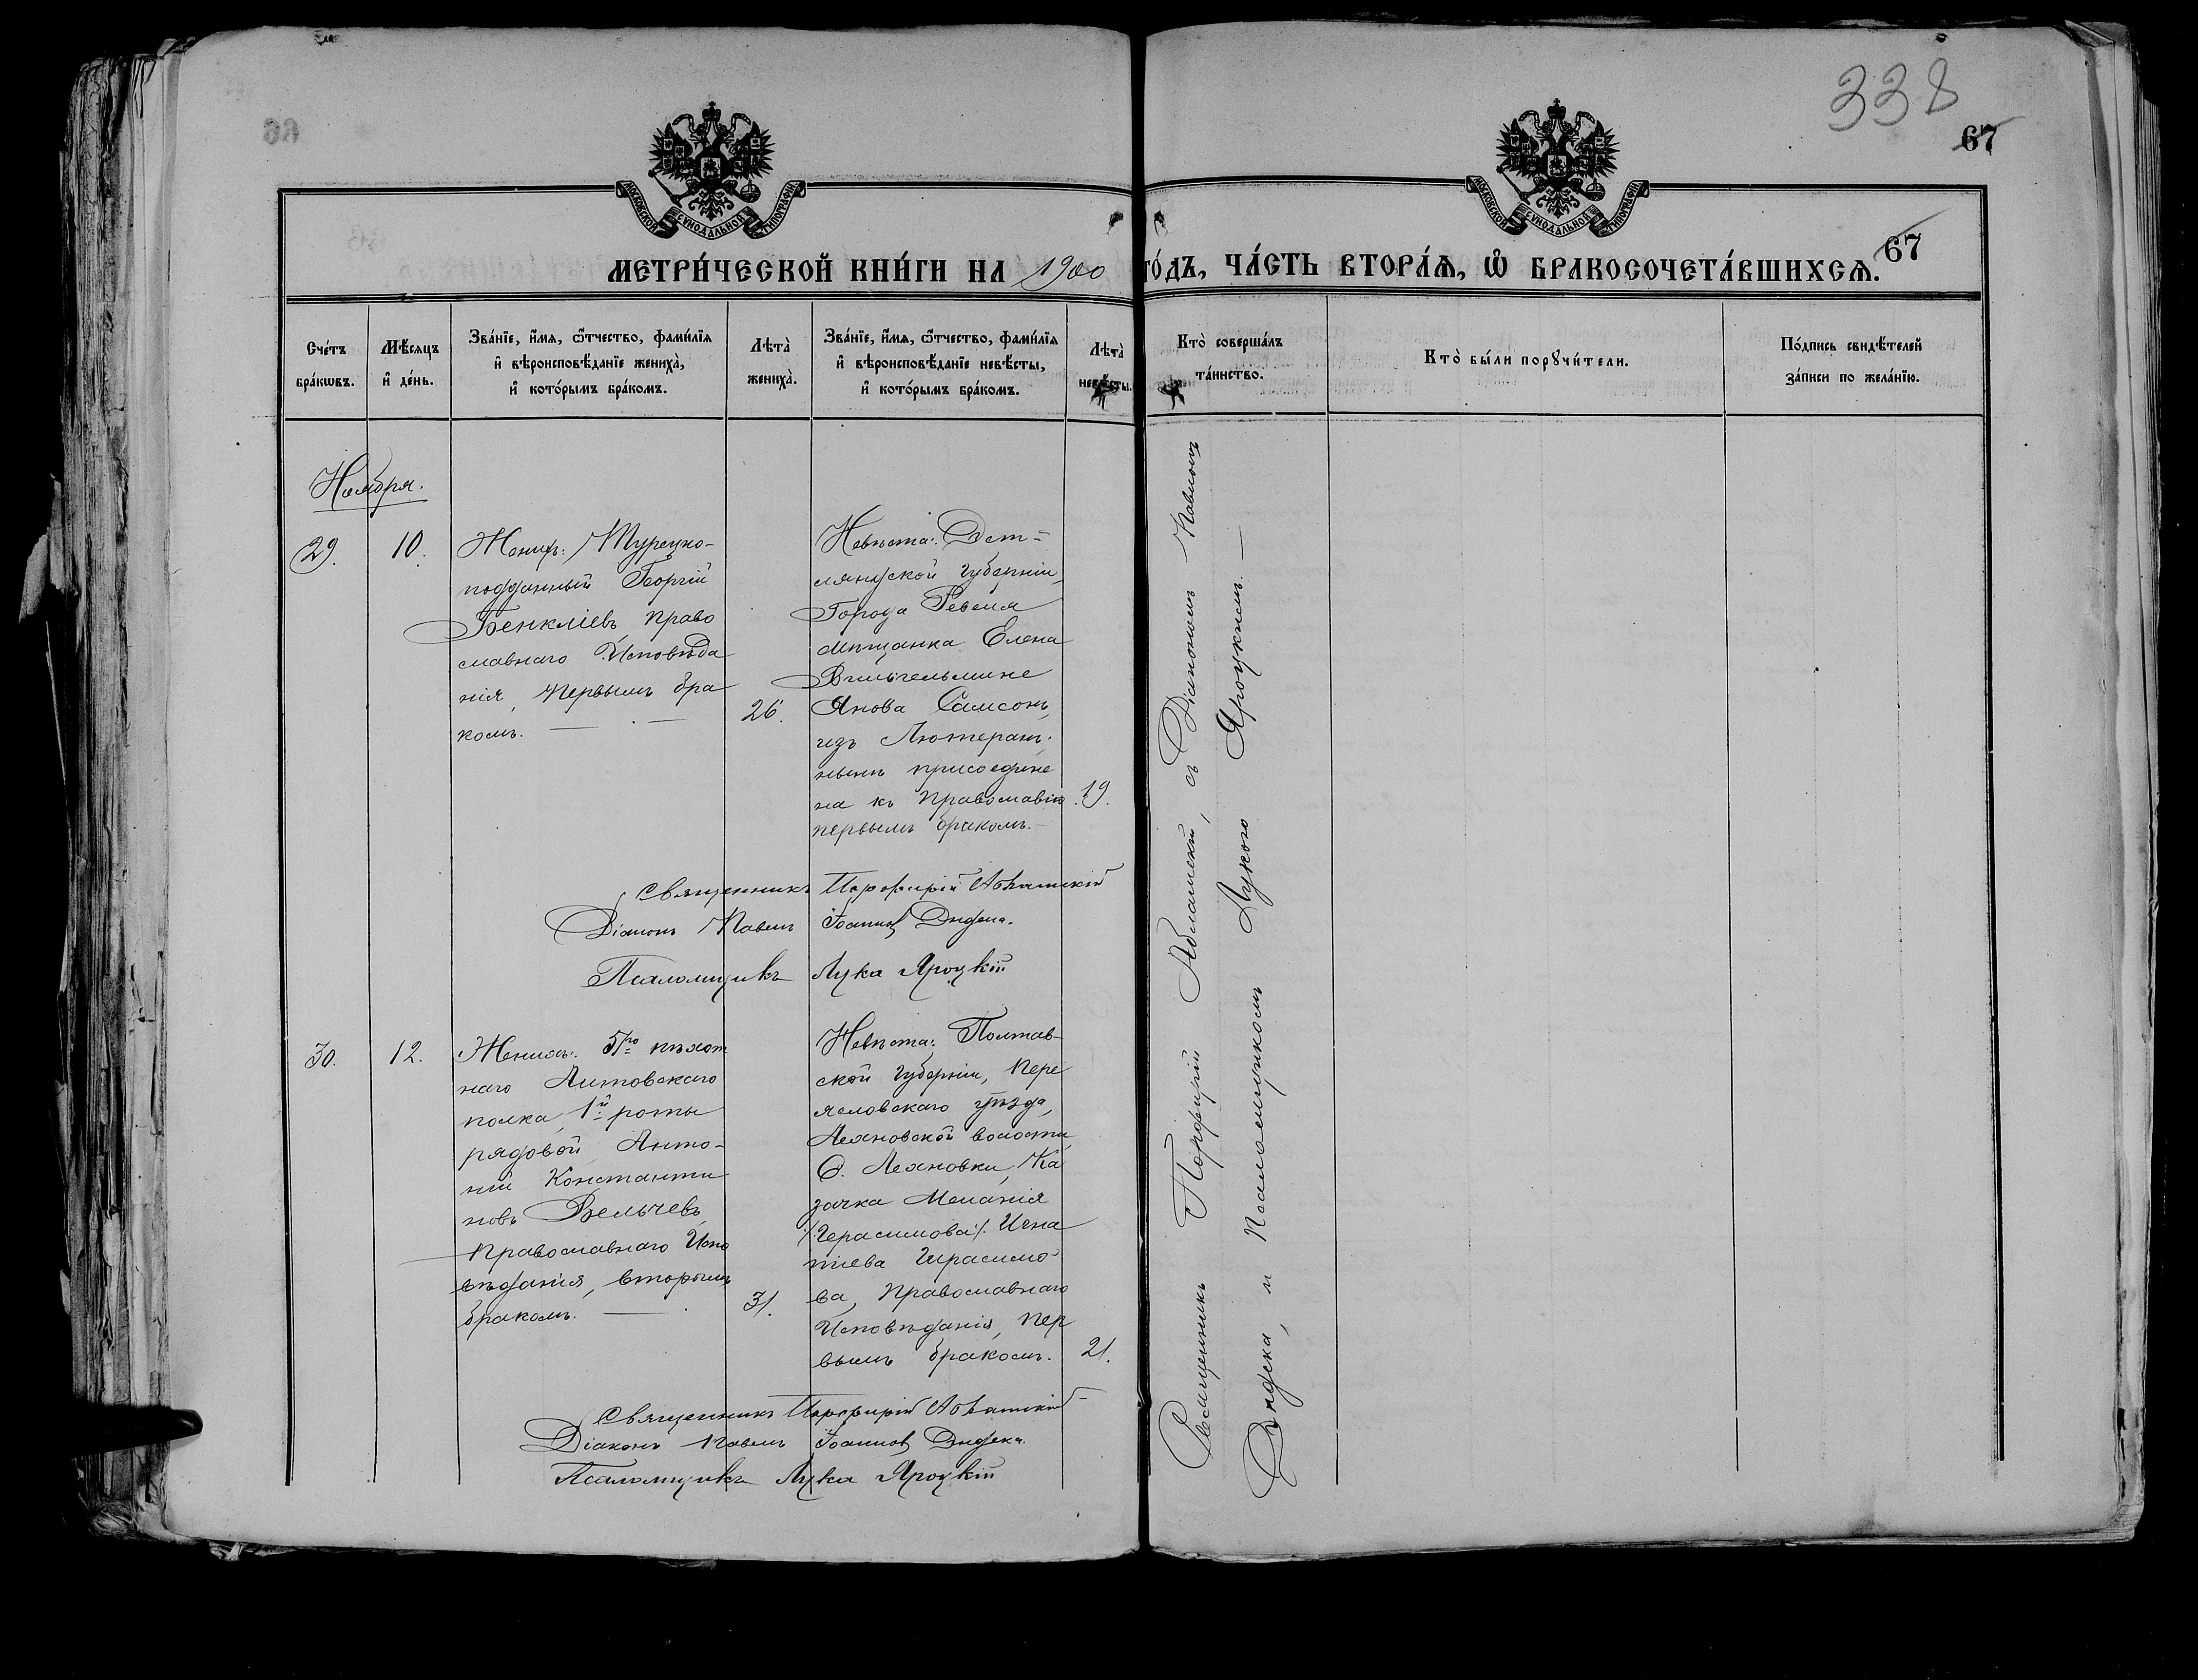 338
67
МОСКОВСКОЙ СѴНОДАЛЬНОЙ ТИПОГРАФІИ
МОСКОВСКОЙ СѴНОДАЛЬНОЙ ТИПОГРАФІИ
67
МЕТРИ́ЧЕСКОЙ КНИ́ГИ НА 1900 ГО́ДЪ, ЧА́СТЬ ВТОРА́Ѧ, Ѽ БРАКОСОЧЕТА́ВШИХСѦ.
Сче́тъ бра́кѡвъ.
Мѣ́сѧцъ и҆ де́нь.
Зва́нїе, и҆́мѧ, ѻ҆́тчество, фами́лїѧ и҆ вѣроисповѣ́данїе жениха̀, и҆ кото́рымъ бра́комъ.
Лѣта̀ жениха̀.
Зва́нїе, и҆́мѧ, ѻ҆́тчество, фами́лїѧ и҆ вѣроисповѣ́данїе невѣ́сты, и҆ кото́рымъ бра́комъ.
Лѣта̀ невѣ́сты.
Кто̀ соверша́лъ та́инство.
Кто̀ бы́ли порꙋчи́тели.
По́дпись свидѣ́телей за́писи по жела́нїю.
Ноября.
29.
10.
Женихъ: Турецко-
подданный Георгій
Бенкліевъ Право
славнаго Исповѣда
нія, Первымъ бра
комъ.
26.
Невѣста: Эст-
ляндской Губерніи,
Города Ревеля
мѣщанка Елена
Вильгельмине
Янова Самсонъ,
изъ Лютеранъ
нынѣ присоедине
на къ Православію
первымъ бракомъ.
19.
Священникъ Порфирій Абламскій
Діаконъ Павелъ Іоанновъ Дидена.
Псаломщикъ Лука Яроцкій
30.
12.
Женихъ: 5го пѣхот
наго Литовскаго
полка, 1й роты
рядовой Анто-
ній Константи
новъ Вельчевъ,
Православнаго Испо
вѣданія, вторымъ
бракомъ.
31.
Невѣста: Полтав-
ской Губерніи, Пере
яславскаго уѣзда,
Леяновской волости,
С. Леяновки, Ка
зачка Меланія
/Герасимова/. Игна
тіева Гирасимо
ва, Православнаго
Исповѣданія, пер
вымъ бракомъ.
21.
Священникъ Порфирій Абламскій
Діаконъ Павелъ Іоанновъ Дидека.
Псаломщикъ Лука Яроцкій
Священникъ Порфирій Абламскій, съ Діакономъ Павломъ
Дидека, и Псаломщикомъ Лукою Яроцкимъ.